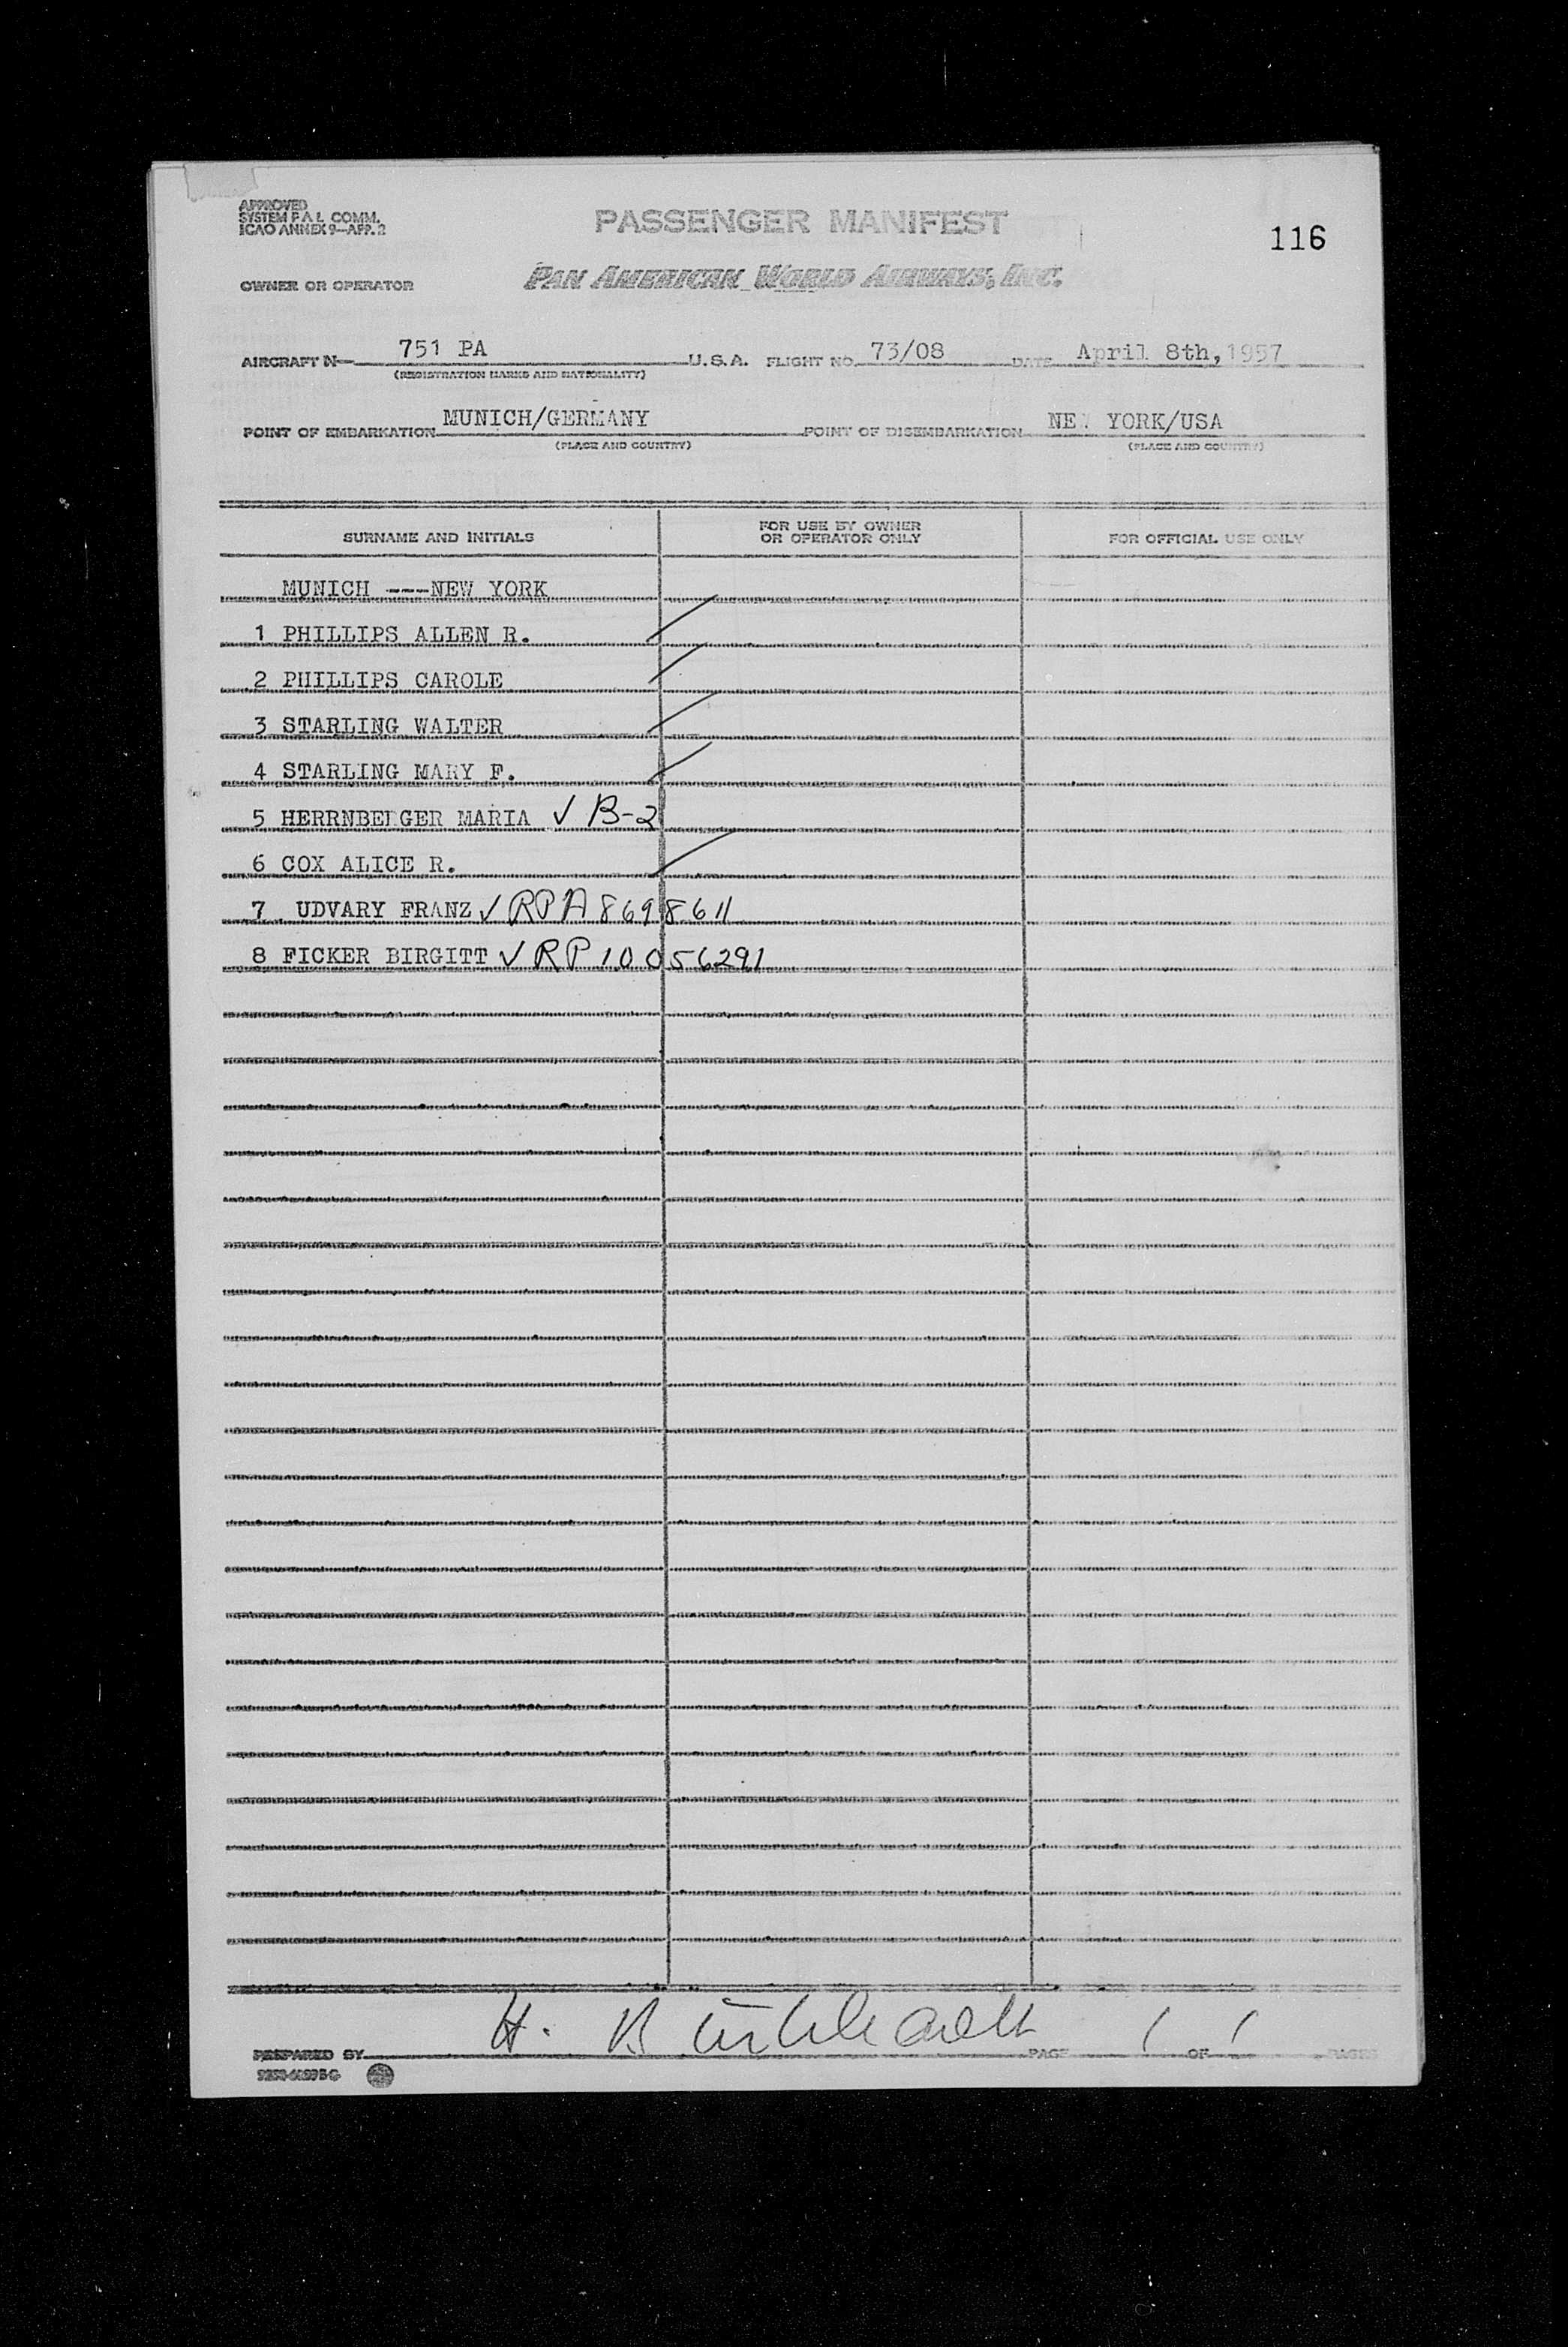 APPROVED
SYSTEM F A L COMM.
ICAO ANNEX 9—APP. 2
PASSENGER MANIFEST
116
OWNER OR OPERATOR
PAN AMERICAN WORLD AIRWAYS, INC.
AIRCRAFT N— 751 PA U.S.A. FLIGHT NO. 73/08 DATE April 8th, 1957
(REGISTRATION MARKS AND NATIONALITY)
POINT OF EMBARKATION MUNICH/GERMANY POINT OF DISEMBARKATION NE YORK/USA
(PLACE AND COUNTRY) (PLACE AND COUNTRY)
SURNAME AND INITIALS FOR USE BY OWNER OR OPERATOR ONLY FOR OFFICIAL USE ONLY
MUNICH ---NEW YORK
1 PHILLIPS ALLEN R.
2 PHILLIPS CAROLE
3 STARLING WALTER
4 STARLING MARY F.
5 HERRNBERGER MARIA ✓ B-2
6 COX ALICE R.
7 UDVARY FRANZ ✓ RPA 8698611
8 FICKER BIRGITT ✓ RP 10056291
PREPARED BY H. PAGE 1 OF 1 PAGES